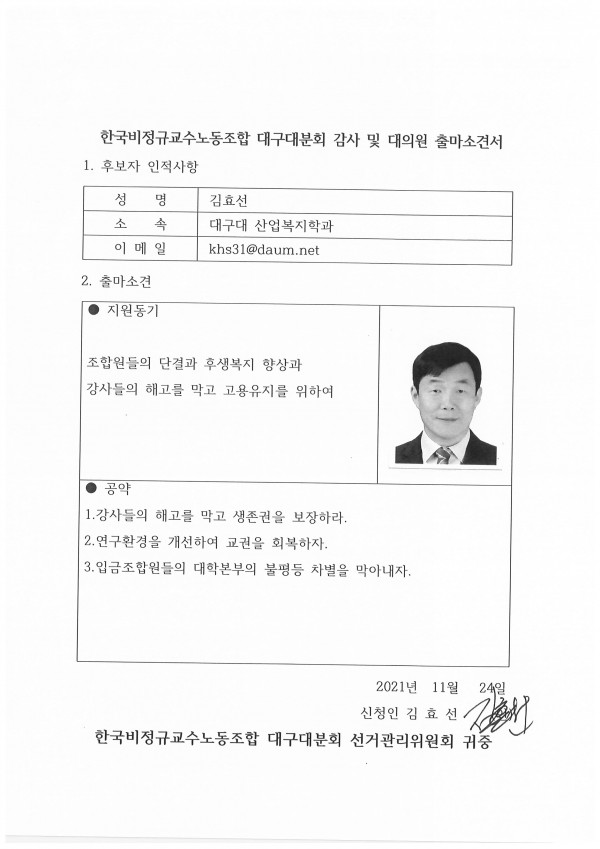 한국비정규교수노동조합 대구대분회 감사 및 대의원 출마소견서
1. 후보자 인적사항
성 명 김효선
소 속 대구대 산업복지학과
이 메 일 khs31@daum.net
2. 출마소견
● 지원동기
조합원들의 단결과 후생복지 향상과
강사들의 해고를 막고 고용유지를 위하여
● 공약
1.강사들의 해고를 막고 생존권을 보장하라.
2.연구환경을 개선하여 교권을 회복하자.
3.입금조합원들의 대학본부의 불평등 차별을 막아내자.
2021년 11월 24일
신청인 김 효 선
한국비정규교수노동조합 대구대분회 선거관리위원회 귀중